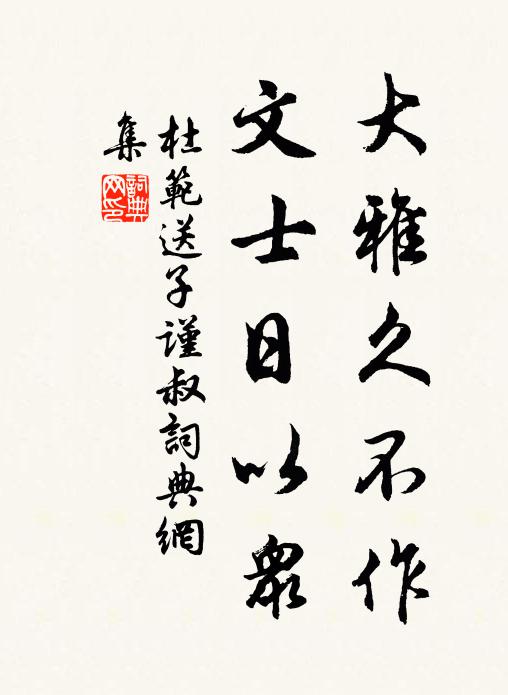 大雅久不作
文士日以眾
杜範送子謹叔詞典網
集
詞典网印